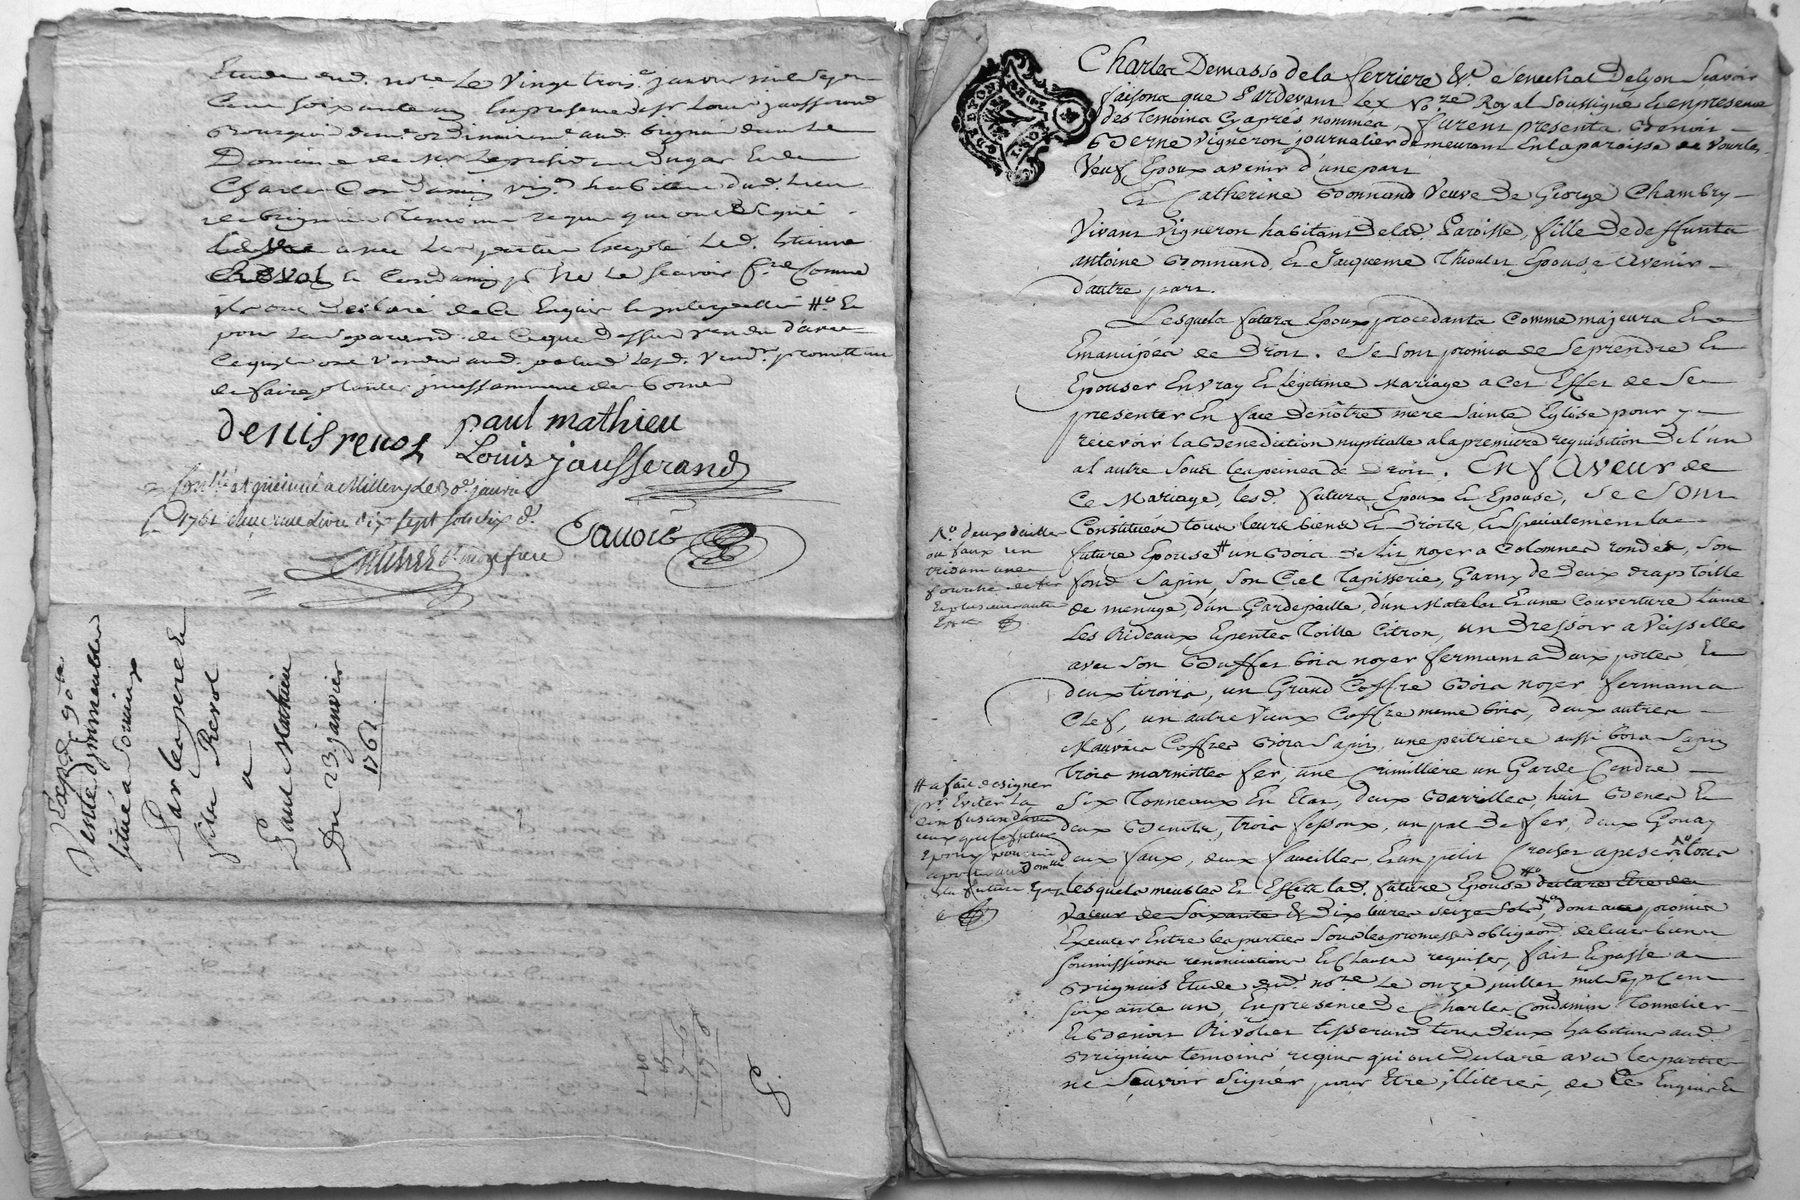 Etude dud. no.re Le Vingt trois.e janvier mil sept
Cent soixante un En presence de sr. Louis jausserand
Bourgeois demt. ordinairemt. aud. brignais dans le
Domaine de Mr. Le president dugas Et de
Charles Condamin vig.n habitant dud. Lieu
de brignais temoins requis qui ont Signé
avec Les parties Excepté Led. Etienne
Revol Le Condamin pr. Ne Le scavoir fre. Comme
ils ont declaré de Ce Enquis
pour
de faire planter incessamment des bornes
denis revol paul mathieu
Louis jausserand
Con.llé et insinué a Millery Le 30.e janvier
1761 une Livre dix sept sols six d.
Savoie
Exped. go.ta
Vente d'immeubles
située a Soucieux
Par les pere et
fils Revol
a
Paul Mathieu
Du 23 janvier
1761.
Charles Demasso de la ferriere &a. Senechal De Lyon Scavoir
faisons que Pardevant Le No.re Royal Soussigné Et en presence
des temoins Cy apres nommés, furent presents Benoit
Berne vigneron journalier demeurant En la paroisse de Vourles,
Veuf Epoux avenir d'une part
Et Catherine Bonnand Veuve de George Chambry
Vivant vigneron habitant de lad. Paroisse, fille de deffunts
antoine Bonnand Et Jacqueme Thioulet Epouse avenir
d'autre part.
Lesquels futurs Epoux procedants Comme majeurs Et
Emancipés de Droit. Se Sont promis de Se prendre Et
Epouser En vray Et legitime Mariage a Cet Effet de Se
presenter En face de nôtre mere Sainte Eglise pour y
recevoir la Benediction nuptialle a la premiere requisition de l'un
a l'autre Sous les peines de Droit. En faveur de
Ce Mariage, lesd. futurs Epoux Et Epouse, Se Sont
Constitués tous leurs biens Et Droits, Et Specialement la
future Epouse # un Bois de lit noyer a Colonnes rondes, Son
fond Sapin, Son Ciel Tapisserie, Garny de Deux draps Toille
de menage, d'un Gardepaille, d'un Matelas Et une Couverture Laine
Les Rideaux Et pentes Toille Citron, un Dressoir a Vaisselle
avec Son Buffet bois noyer fermant a Deux portes Et
deux tiroirs, un Grand Coffre Bois noyer fermant a
Clef, un autre vieux Coffre meme bois, deux autres
Mauvais Coffres Bois Sapin, une peitriere aussi bois Sapin
trois marmittes fer, une Crimilliere un Garde Cendre
Six Tonneaux En Etat, deux Barrilles, huit Benes Et
deux Benots, trois fessoux, un pal de fer, deux Gouay
deux faux, deux faucilles, Et un petit Crochet a peser N.o tous
lesquels meubles Et Effets lad. future Epouse #o declare Etre de
Valeur de Soixante & Dix livres seize Sols, dont acte promis
Executer Entre les parties Sous les promesses obligaon. de leurs biens
Soumissions renonciations Et Clauses requises, fait Et passé a
Brignais Etude dud. No.re Le onze juillet mil Sept Cent
Soixante un, En presence de Charles Condamin Tonnelier
Et Benoit Rivollet tisserand tous deux habitans aud.
Brignais temoins requis qui ont Declaré avec les parties
ne Scavoir Signer pour Etre illiterés, de Ce Enquis Et
N.o deux dailles
ou faux un
trident une
fourche de fer
Et plusieurs autres
# a fait designer
pr. Eviter La
Confusion d'avec
ceux que le futur
Epoux pourroit
aporter au Domicile
de la future